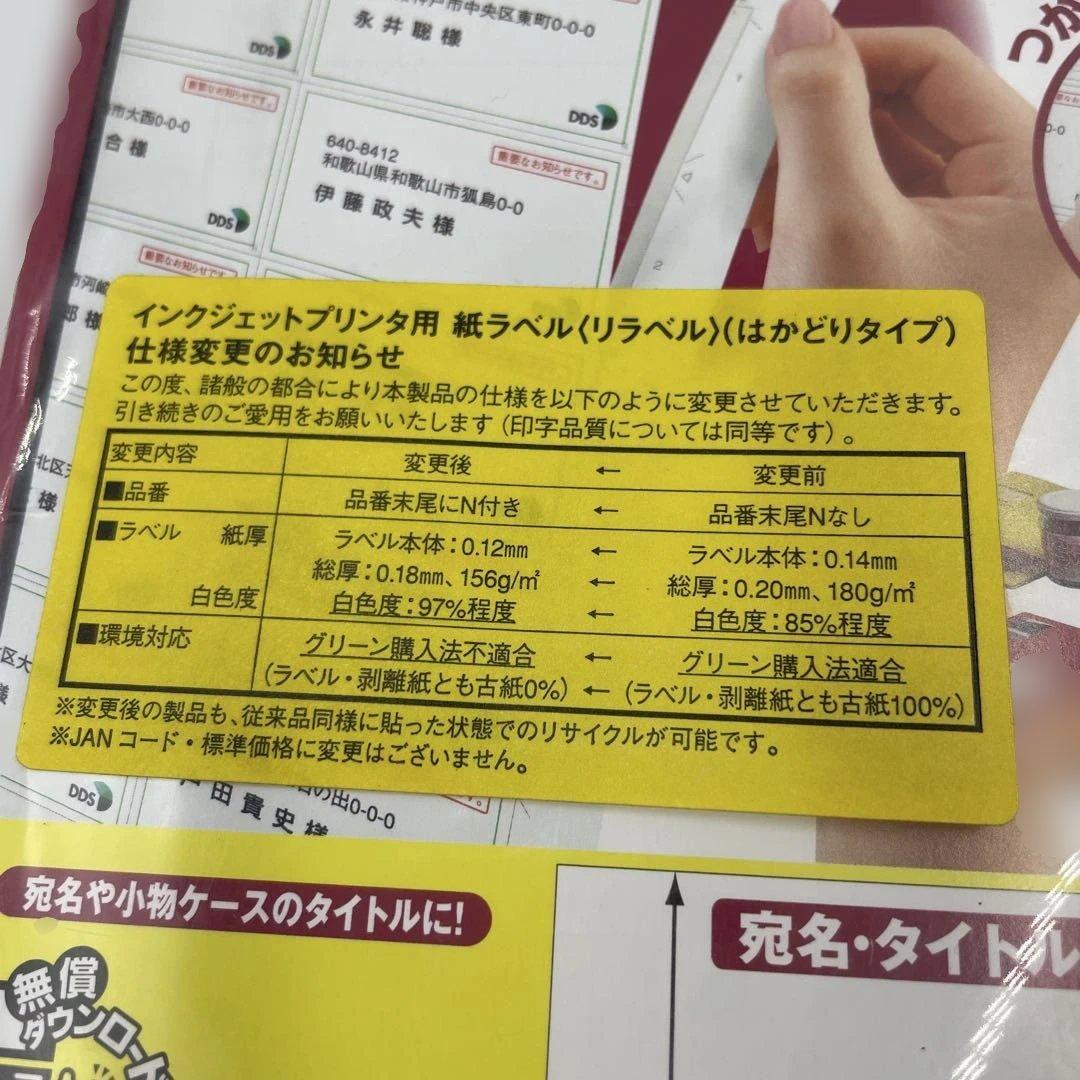 神戸市中央区東町0-0-0
永井聡様
DDS
DDS
重要なお知らせです。
市大西0-0-0
合様
DDS
重要なお知らせです。
640-8412
和歌山県和歌山市狐島0-0
伊藤政夫様
つか
重要なお知らせです。
市河崎
郎様
インクジェットプリンタ用 紙ラベル〈リラベル〉(はかどりタイプ)
仕様変更のお知らせ
この度、諸般の都合により本製品の仕様を以下のように変更させていただきます。
引き続きのご愛用をお願いいたします(印字品質については同等です)。
変更内容 変更後 ← 変更前
■品番 品番末尾にN付き ← 品番末尾Nなし
■ラベル 紙厚 ラベル本体:0.12㎜ ← ラベル本体:0.14㎜
総厚:0.18㎜、156g/㎡ ← 総厚:0.20㎜、180g/㎡
白色度 白色度:97%程度 ← 白色度:85%程度
■環境対応 グリーン購入法不適合 ← グリーン購入法適合
(ラベル・剥離紙とも古紙0%) ← (ラベル・剥離紙とも古紙100%)
※変更後の製品も、従来品同様に貼った状態でのリサイクルが可能です。
※JANコード・標準価格に変更はございません。
北区天
様
区大
様
DDS
日の出0-0-0
戸田貴史様
宛名や小物ケースのタイトルに!
宛名・タイトル
無償
ダウンロード